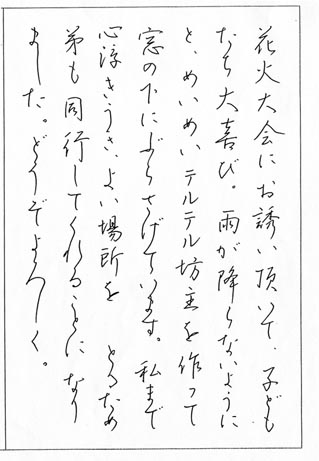 花火大会にお誘い頂いて、子ども
たち大喜び。雨が降らないように
と、めいめいテルテル坊主を作って
窓の下にぶらさげています。私まで
心浮きうき、よい場所を とるため
弟も同行してくれることに なり
ました。どうぞよろしく。